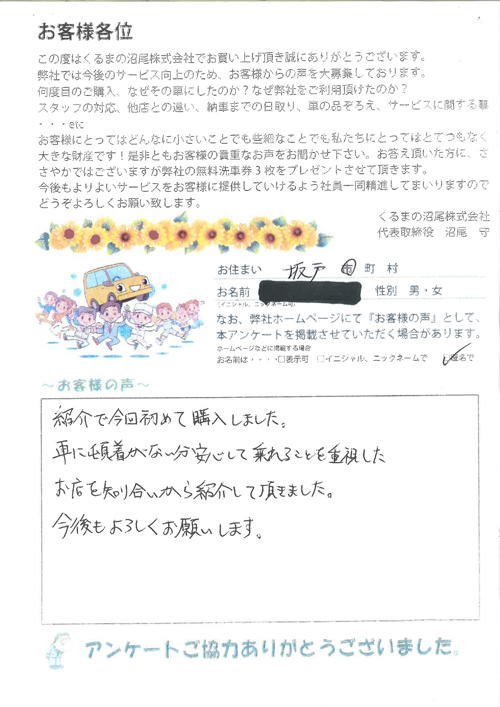 お客様各位
この度はくるまの沼尾株式会社でお買い上げ頂き誠にありがとうございます。
弊社では今後のサービス向上のため、お客様からの声を大募集しております。
何度目のご購入、なぜその車にしたのか？なぜ弊社をご利用頂けたのか？
スタッフの対応、他店との違い、納車までの日取り、車の品ぞろえ、サービスに関する事
・・・etc
お客様にとってはどんなに小さいことでも些細なことでも私たちにとってはとてつもなく
大きな財産です！是非ともお客様の貴重なお声をお聞かせ下さい。お答え頂いた方に、さ
さやかではございますが弊社の無料洗車券３枚をプレゼントさせて頂きます。
今後もよりよいサービスをお客様に提供していけるよう社員一同精進してまいりますので
どうぞよろしくお願い致します。
くるまの沼尾株式会社
代表取締役 沼尾 守
お住まい 坂戸 市 町 村
お名前 性別 男・女
(イニシャル、ニックネーム可)
なお、弊社ホームページにて『お客様の声』として、
本アンケートを掲載させていただく場合があります。
ホームページなどに掲載する場合
お名前は・・・・□表示可 □イニシャル、ニックネームで □匿名で
～お客様の声～
紹介で今回初めて購入しました。
車に頓着がない分安心して乗れることを重視した
お店を知り合いから紹介して頂きました。
今後もよろしくお願いします。
アンケートご協力ありがとうございました。